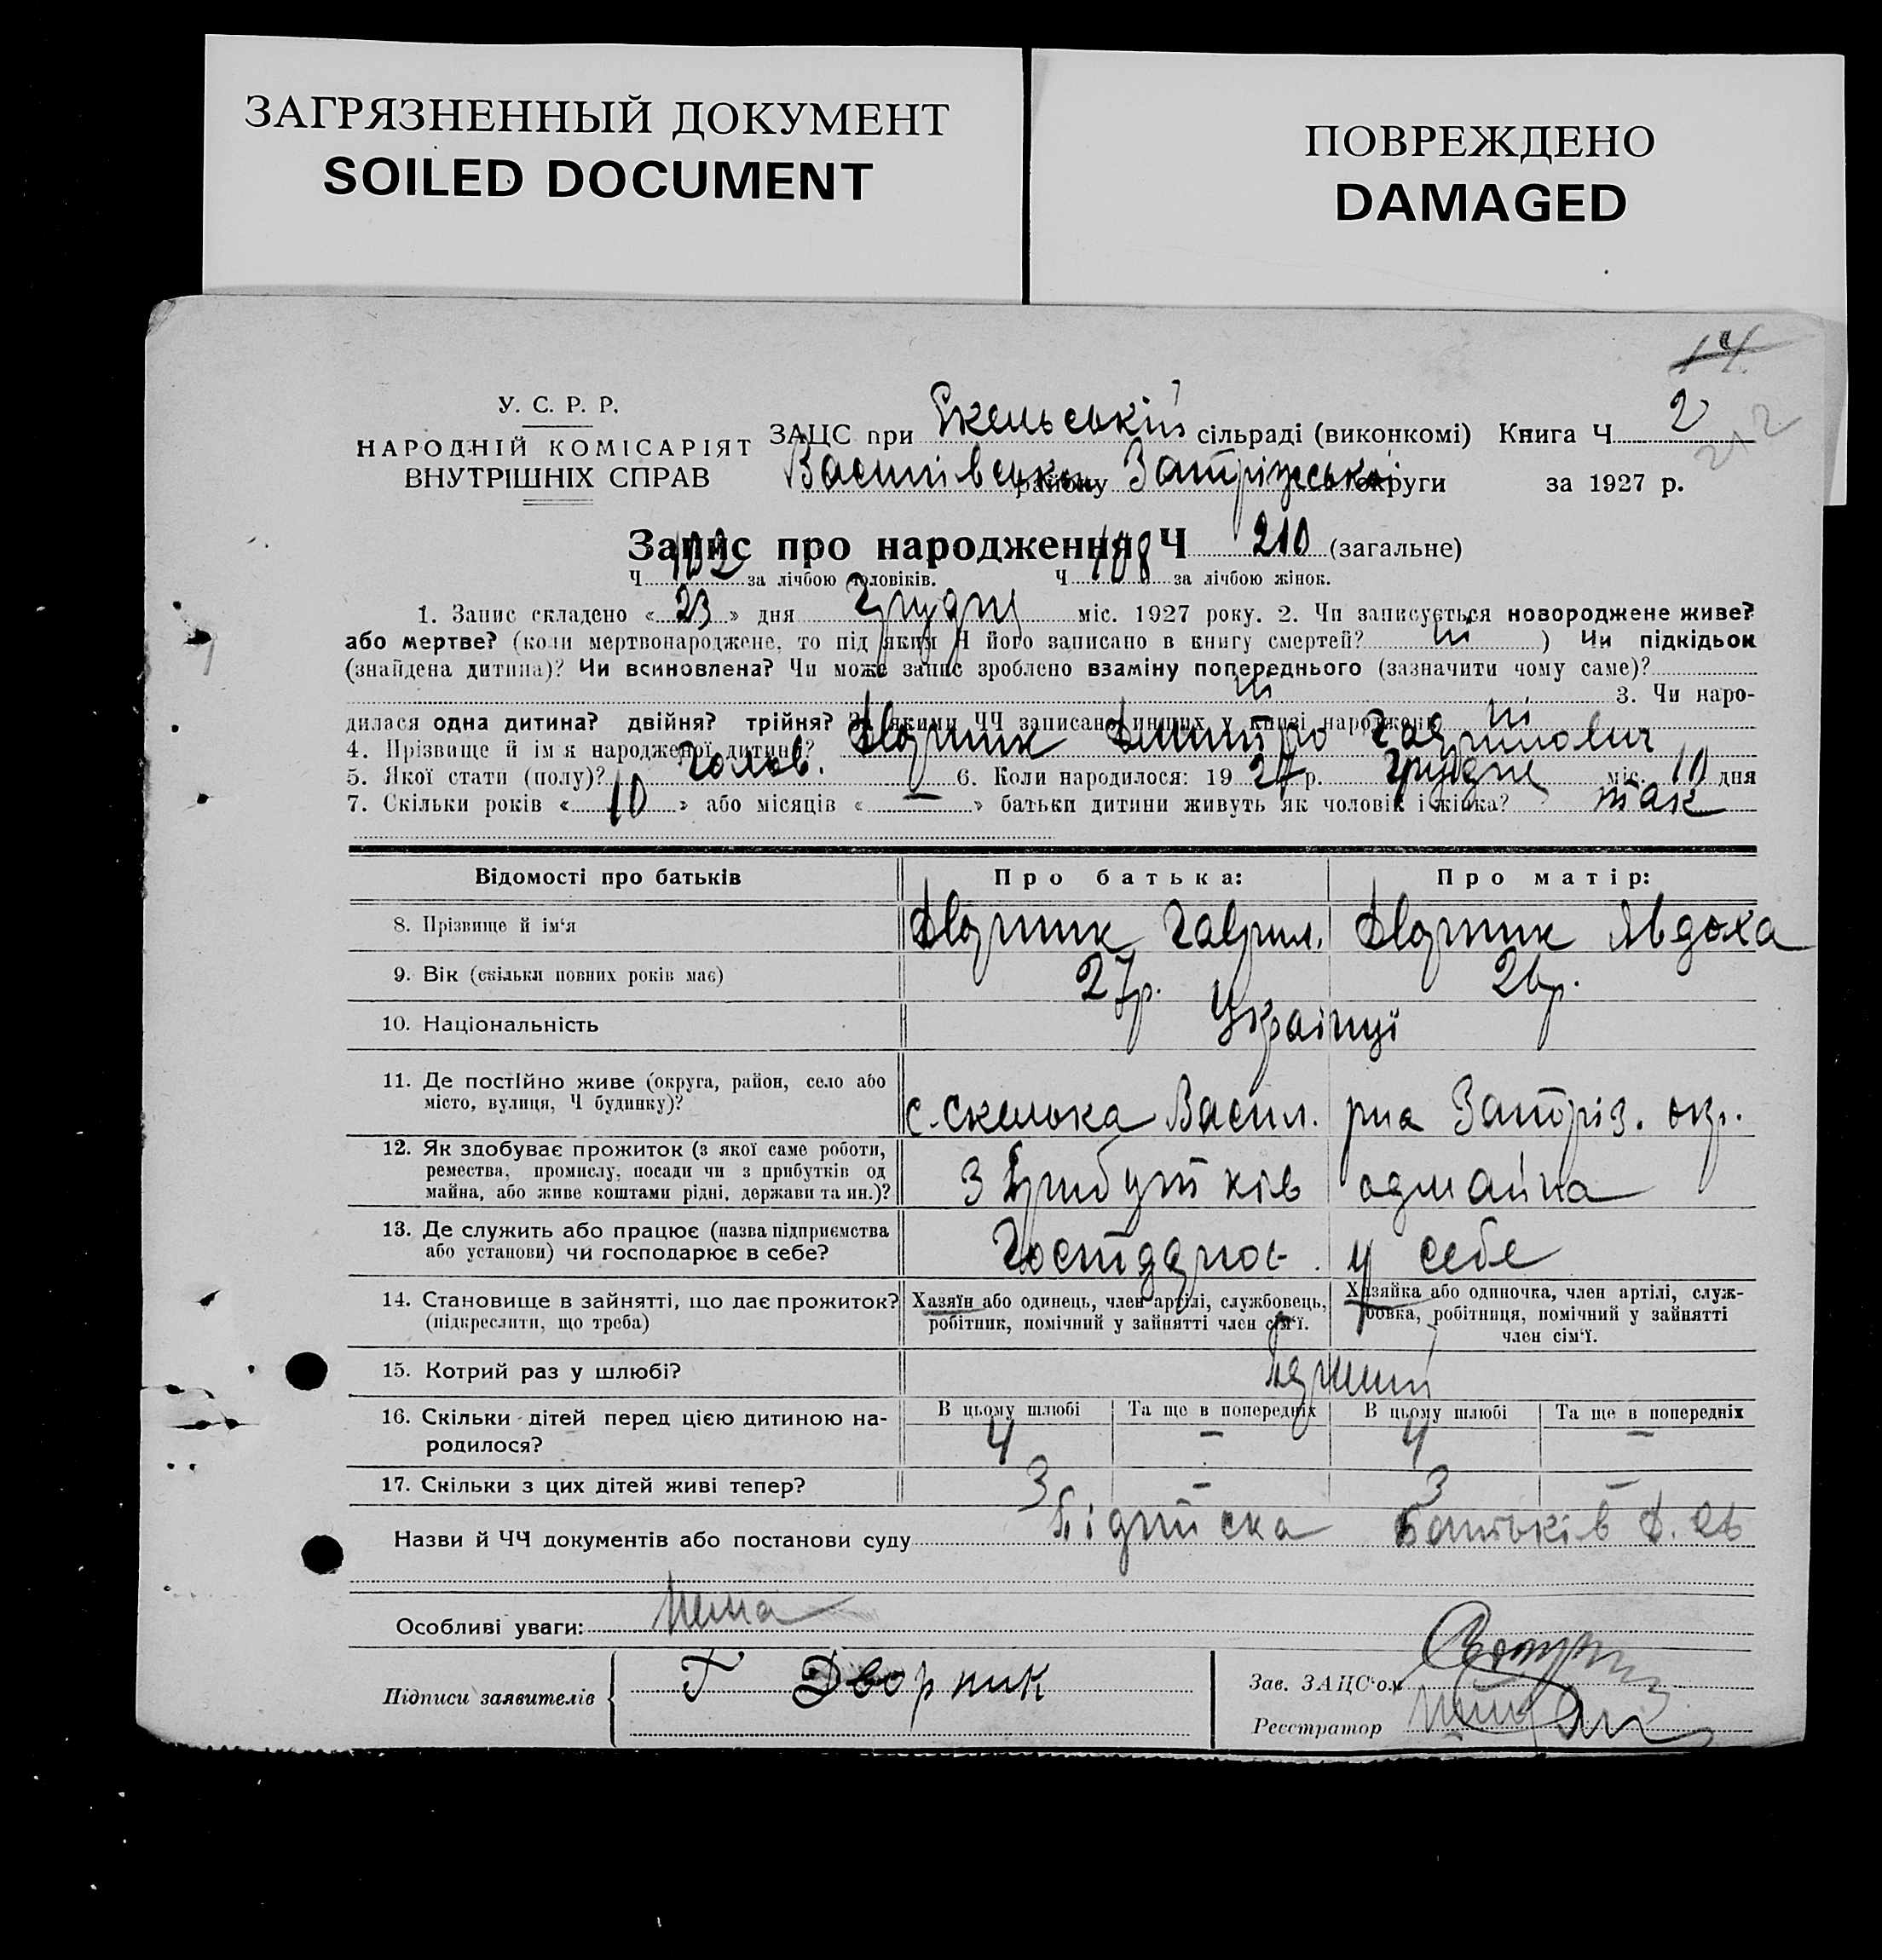 ЗАГРЯЗНЕННЫЙ ДОКУМЕНТ
SOILED DOCUMENT
ПОВРЕЖДЕНО
DAMAGED
14.
У. С. Р. Р.
НАРОДНІЙ КОМІСАРІЯТ
ВНУТРІШНІХ СПРАВ
ЗАЦС при Скельській сільраді (виконкомі) Книга Ч 2
Василівськ району Запорізької округи за 1927 р.
Запис про народження Ч 210 (загальне)
Ч 102 за лічбою чоловіків. Ч 108 за лічбою жінок.
1. Запис складено « 23 » дня Грудня міс. 1927 року. 2. Чи записується новороджене живе?
або мертве? (коли мертвонароджене, то під яким Ч його записано в книгу смертей? ні ) Чи підкідьок
(знайдена дитина)? Чи всиновлена? Чи може запис зроблено взаміну попереднього (зазначити чому саме)?
ні 3. Чи наро-
дилася одна дитина? двійня? трійня? За якими ЧЧ записано инших у книзі народжень ні
4. Прізвище й ім'я народженої дитини? Дворник Дмитро Гаврилович
5. Якої стати (полу)? Чолов. 6. Коли народилося: 1927 р. Грудня міс. 10 дня
7. Скільки років « 10 » або місяців « — » батьки дитини живуть як чоловік і жінка? так
Відомості про батьків Про батька: Про матір:
8. Прізвище й ім'я Дворник Гаврил. Дворник Явдоха
9. Вік (скільки повних років має) 27р. 26р.
10. Національність Українці
11. Де постійно живе (округа, район, село або
місто, вулиця, Ч будинку)? с. Скелька Васил. р-на Запоріз. окр.
12. Як здобуває прожиток (з якої саме роботи,
ремества, промислу, посади чи з прибутків од
майна, або живе коштами рідні, держави та ин.)? З прибутків одмайна
13. Де служить або працює (назва підприємства
або установи) чи господарює в себе? Господарює у себе
14. Становище в зайнятті, що дає прожиток?
(підкреслити, що треба)
Хазяїн або одинець, член артілі, службовець,
робітник, помічний у зайнятті член сім'ї.
Хазяйка або одиночка, член артілі, служ-
бовка, робітниця, помічний у зайнятті
член сім'ї.
15. Котрий раз у шлюбі? перший
16. Скільки дітей перед цією дитиною на-
родилося?
В цьому шлюбі Та ще в попередніх В цьому шлюбі Та ще в попередніх
4 — 4 —
17. Скільки з цих дітей живі тепер? 3 — 3 —
Назви й ЧЧ документів або постанови суду Підписка батьків
Особливі уваги: Нема
Підписи заявителів Г Дворник
Зав. ЗАЦС'ом
Реєстратор